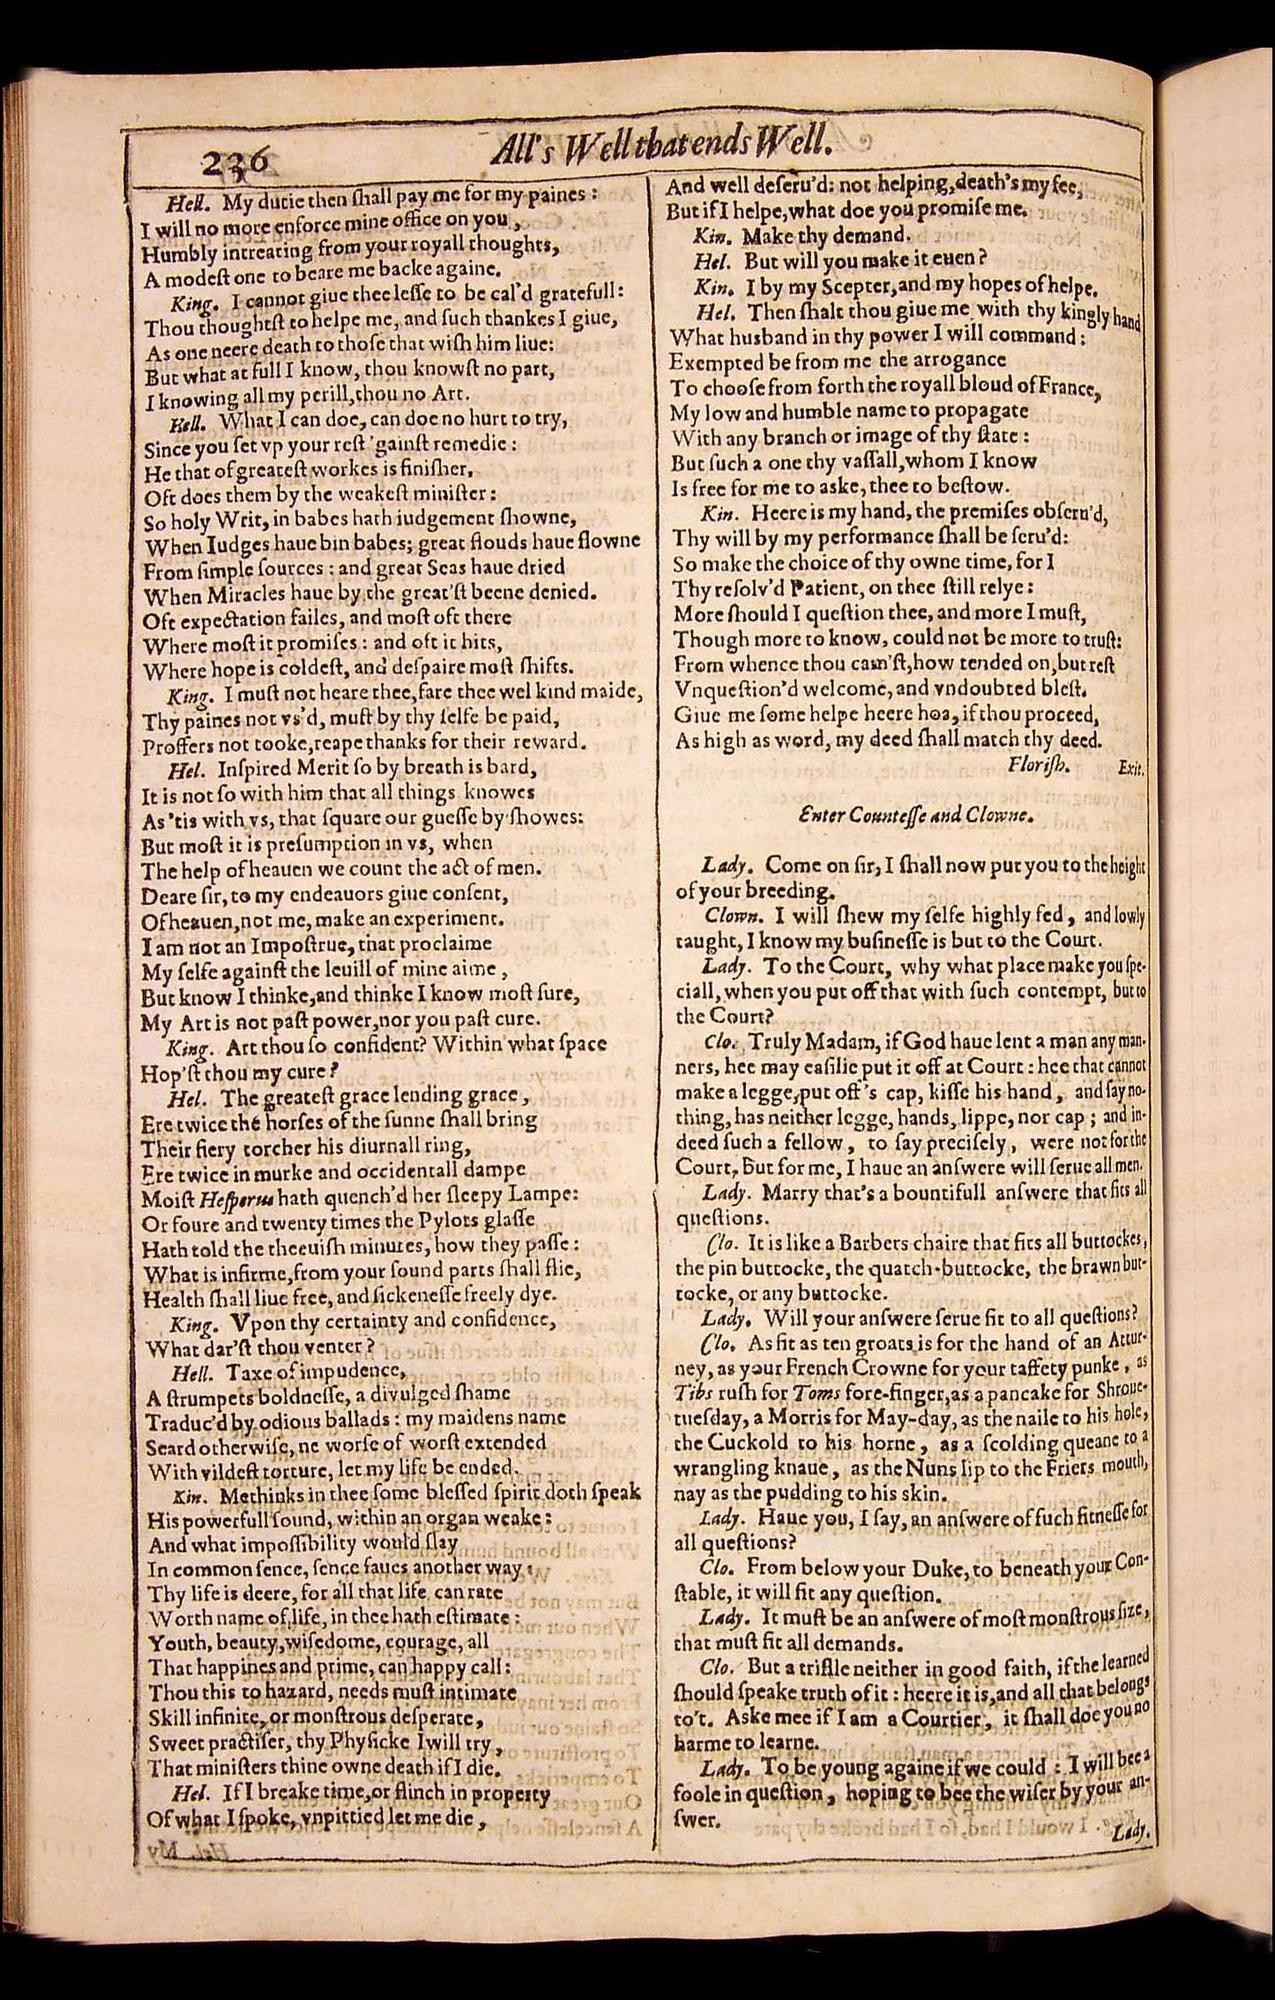 236
All's Well that ends Well.
Hell. My dutie then ſhall pay me for my paines:
I will no more enforce mine office on you,
Humbly intreating from your royall thoughts,
A modeſt one to beare me backe againe.
King. I cannot giue thee leſſe to be cal'd gratefull:
Thou thoughtſt to helpe me, and ſuch thankes I giue,
As one neere death to thoſe that wiſh him liue:
But what at full I know, thou knowſt no part,
I knowing all my perill, thou no Art.
Hell. What I can doe, can doe no hurt to try,
Since you ſet vp your reſt 'gainſt remedie:
He that of greateſt workes is finiſher,
Oft does them by the weakeſt miniſter:
So holy Writ, in babes hath iudgement ſhowne,
When Iudges haue bin babes; great flouds haue flowne
From ſimple ſources: and great Seas haue dried
When Miracles haue by the great'ſt beene denied.
Oft expectation failes, and moſt oft there
Where moſt it promiſes: and oft it hits,
Where hope is coldeſt, and deſpaire moſt ſhifts.
King. I muſt not heare thee, fare thee wel kind maide,
Thy paines not vs'd, muſt by thy ſelfe be paid,
Proffers not tooke, reape thanks for their reward.
Hel. Inſpired Merit ſo by breath is bard,
It is not ſo with him that all things knowes
As 'tis with vs, that ſquare our gueſſe by ſhowes:
But moſt it is preſumption in vs, when
The help of heauen we count the act of men.
Deare ſir, to my endeauors giue conſent,
Of heauen, not me, make an experiment.
I am not an Impoſtrue, that proclaime
My ſelfe againſt the leuill of mine aime,
But know I thinke, and thinke I know moſt ſure,
My Art is not paſt power, nor you paſt cure.
King. Art thou ſo confident? Within what ſpace
Hop'ſt thou my cure?
Hel. The greateſt grace lending grace,
Ere twice the horſes of the ſunne ſhall bring
Their fiery torcher his diurnall ring,
Ere twice in murke and occidentall dampe
Moiſt Heſperus hath quench'd her ſleepy Lampe:
Or foure and twenty times the Pylots glaſſe
Hath told the theeuiſh minutes, how they paſſe:
What is infirme, from your ſound parts ſhall flie,
Health ſhall liue free, and ſickeneſſe freely dye.
King. Vpon thy certainty and confidence,
What dar'ſt thou venter?
Hell. Taxe of impudence,
A ſtrumpets boldneſſe, a divulged ſhame
Traduc'd by odious ballads: my maidens name
Seard otherwiſe, ne worſe of worſt extended
With vildeſt torture, let my life be ended.
Kin. Methinks in thee ſome bleſſed ſpirit doth ſpeak
His powerfull ſound, within an organ weake:
And what impoſſibility would ſlay
In common ſence, ſence ſaues another way:
Thy life is deere, for all that life can rate
Worth name of life, in thee hath eſtimate:
Youth, beauty, wiſedome, courage, all
That happines and prime, can happy call:
Thou this to hazard, needs muſt intimate
Skill infinite, or monſtrous deſperate,
Sweet practiſer, thy Phyſicke I will try,
That miniſters thine owne death if I die.
Hel. If I breake time, or flinch in property
Of what I ſpoke, vnpittied let me die,
And well deſeru'd: not helping, death's my fee,
But if I helpe, what doe you promiſe me.
Kin. Make thy demand.
Hel. But will you make it euen?
Kin. I by my Scepter, and my hopes of helpe.
Hel. Then ſhalt thou giue me with thy kingly hand
What husband in thy power I will command:
Exempted be from me the arrogance
To chooſe from forth the royall bloud of France,
My low and humble name to propagate
With any branch or image of thy ſtate:
But ſuch a one thy vaſſall, whom I know
Is free for me to aske, thee to beſtow.
Kin. Heere is my hand, the premiſes obſeru'd,
Thy will by my performance ſhall be ſeru'd:
So make the choice of thy owne time, for I
Thy reſolv'd Patient, on thee ſtill relye:
More ſhould I queſtion thee, and more I muſt,
Though more to know, could not be more to truſt:
From whence thou cam'ſt, how tended on, but reſt
Vnqueſtion'd welcome, and vndoubted bleſt.
Giue me ſome helpe heere hoa, if thou proceed,
As high as word, my deed ſhall match thy deed.
Floriſh. Exit.
Enter Counteſſe and Clowne.
Lady. Come on ſir, I ſhall now put you to the height
of your breeding.
Clown. I will ſhew my ſelfe highly fed, and lowly
taught, I know my buſineſſe is but to the Court.
Lady. To the Court, why what place make you ſpe-
ciall, when you put off that with ſuch contempt, but to
the Court?
Clo. Truly Madam, if God haue lent a man any man-
ners, hee may eaſilie put it off at Court: hee that cannot
make a legge, put off's cap, kiſſe his hand, and ſay no-
thing, has neither legge, hands, lippe, nor cap; and in-
deed ſuch a fellow, to ſay preciſely, were not for the
Court, But for me, I haue an anſwere will ſerue all men.
Lady. Marry that's a bountifull anſwere that fits all
queſtions.
Clo. It is like a Barbers chaire that fits all buttockes,
the pin buttocke, the quatch-buttocke, the brawn but-
tocke, or any buttocke.
Lady. Will your anſwere ſerue fit to all queſtions?
Clo. As fit as ten groats is for the hand of an Attur-
ney, as your French Crowne for your taffety punke, as
Tibs ruſh for Toms fore-finger, as a pancake for Shroue-
tueſday, a Morris for May-day, as the naile to his hole,
the Cuckold to his horne, as a ſcolding queane to a
wrangling knaue, as the Nuns lip to the Friers mouth,
nay as the pudding to his skin.
Lady. Haue you, I ſay, an anſwere of ſuch fitneſſe for
all queſtions?
Clo. From below your Duke, to beneath your Con-
ſtable, it will fit any queſtion.
Lady. It muſt be an anſwere of moſt monſtrous ſize,
that muſt fit all demands.
Clo. But a trifle neither in good faith, if the learned
ſhould ſpeake truth of it: heere it is, and all that belongs
to't. Aske mee if I am a Courtier, it ſhall doe you no
harme to learne.
Lady. To be young againe if we could: I will bee a
foole in queſtion, hoping to bee the wiſer by your an-
ſwer.
Lady.